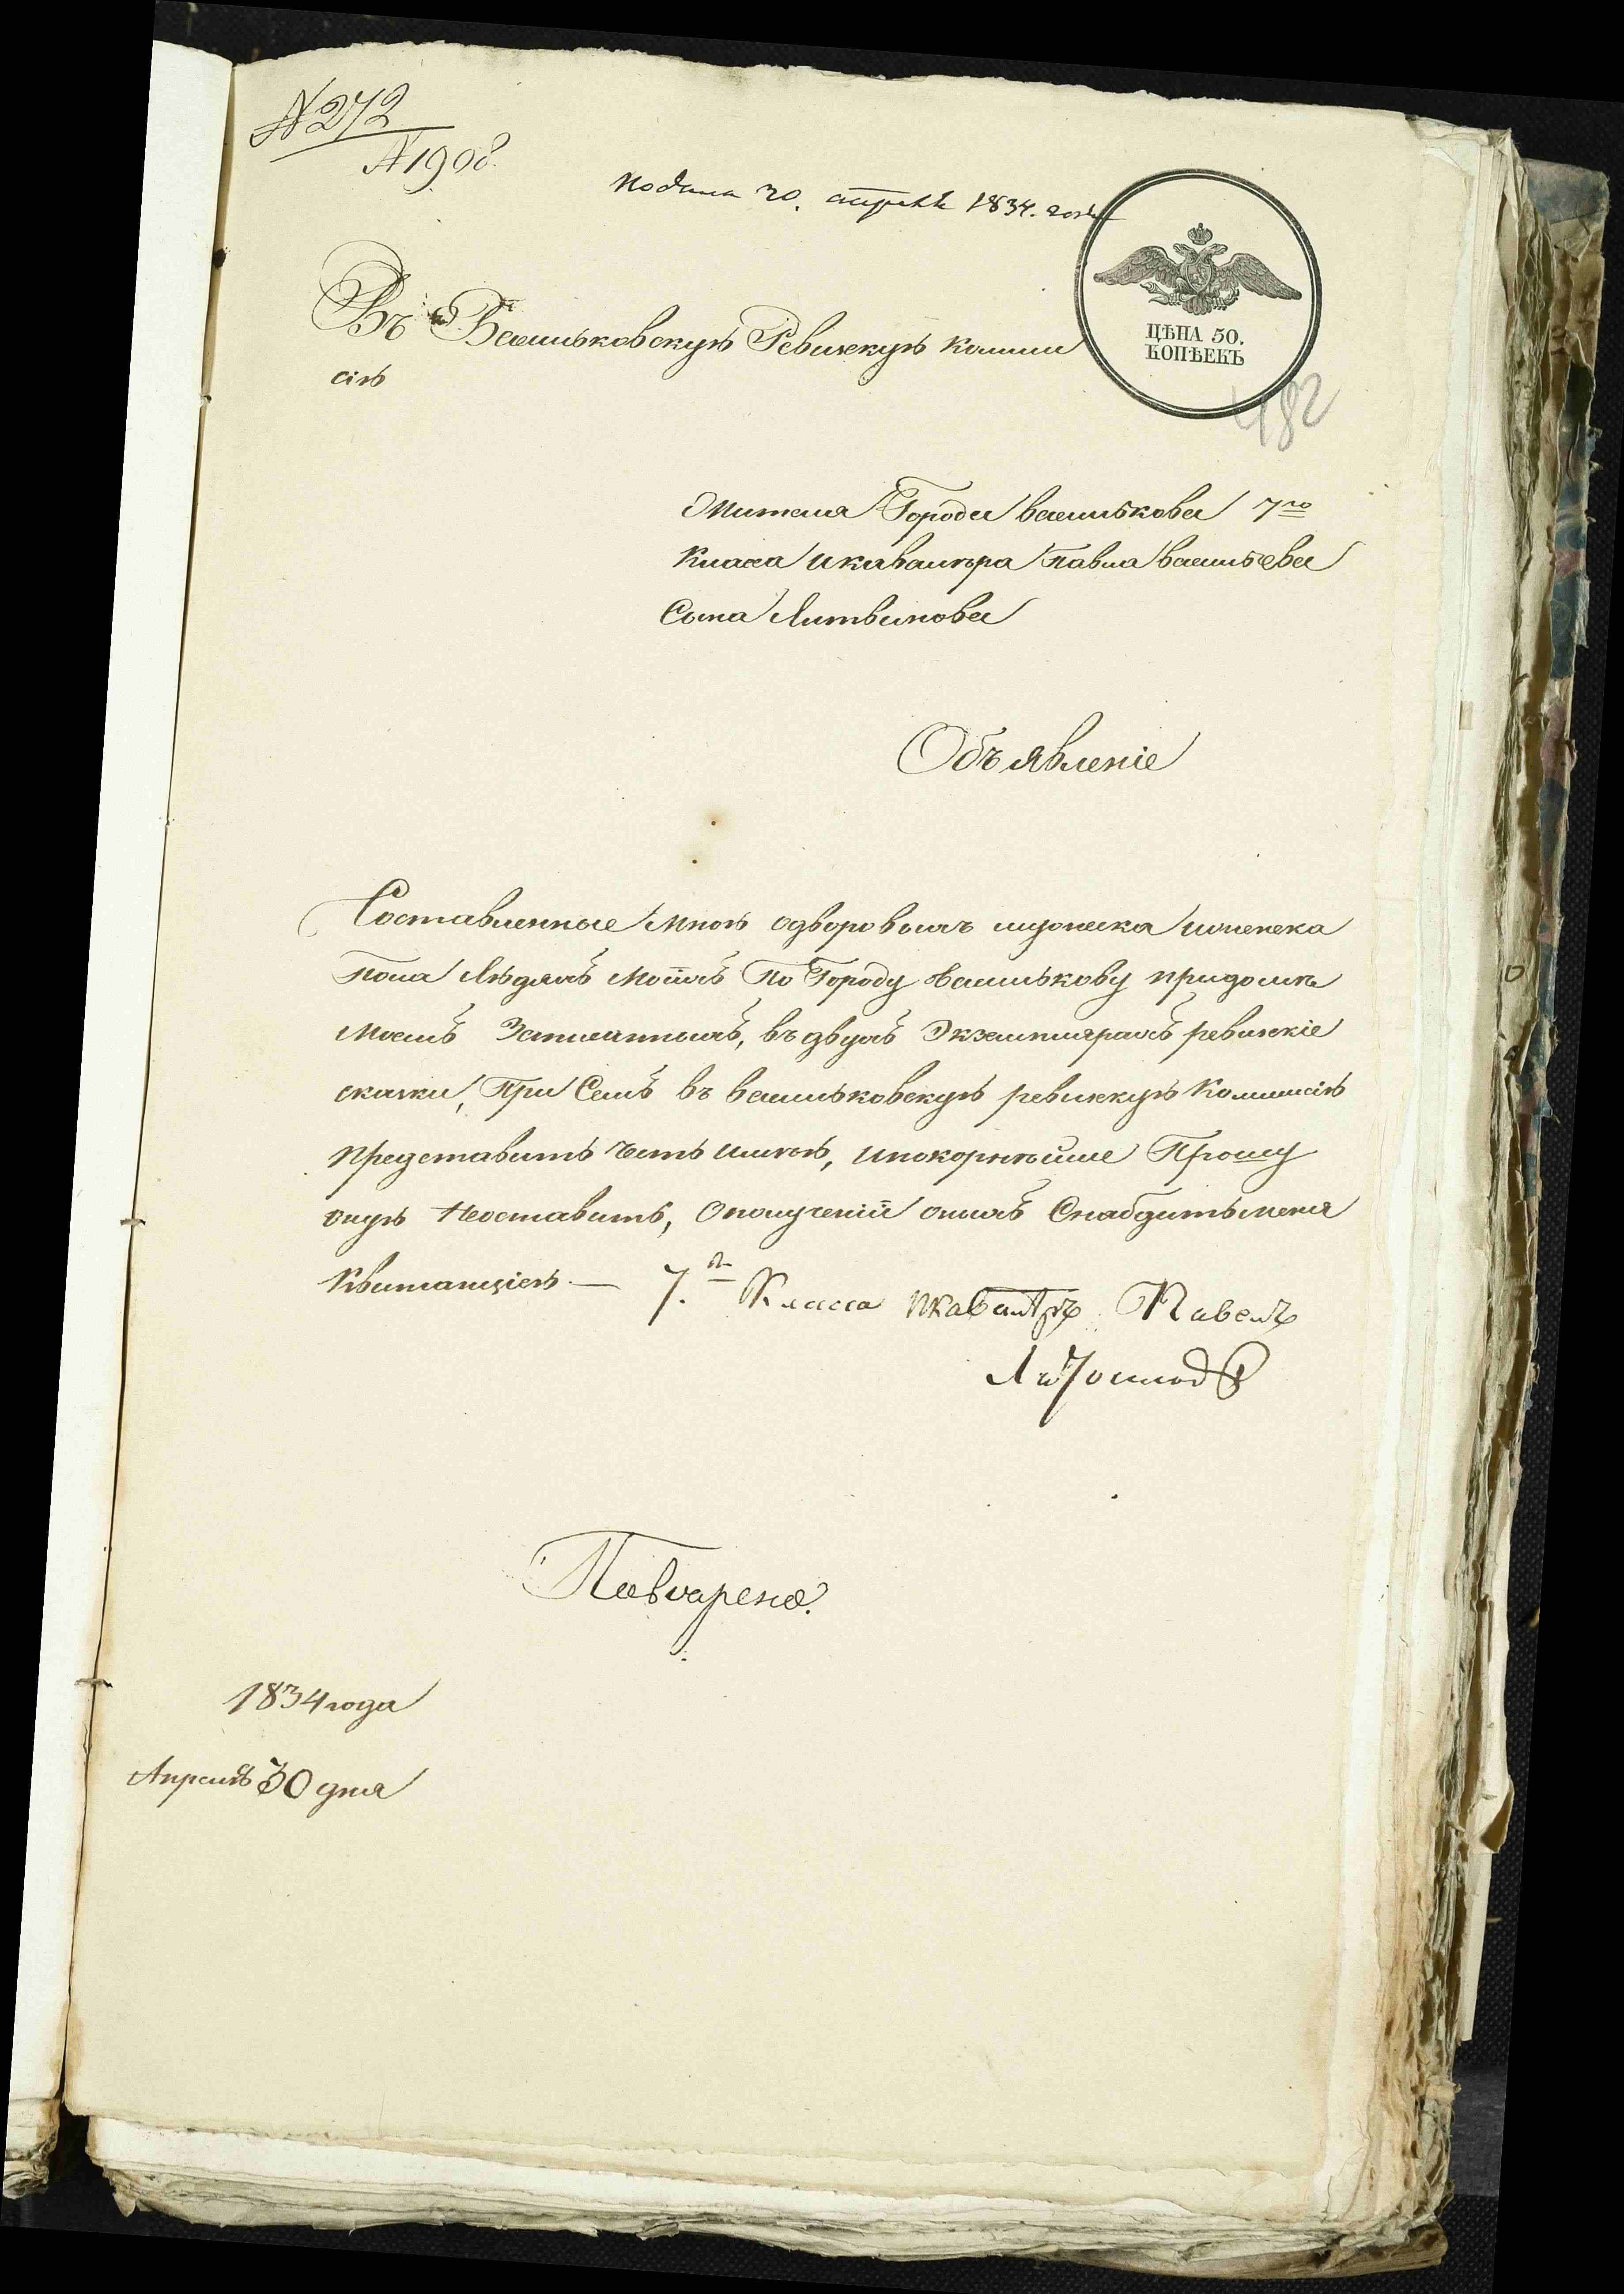 N 272
N 1908.
Подана 30. апреля 1834. года
ЦѢНА 50.
КОПѢЕКЪ
482
Въ Васильковскую Ревизкую комми
сію
Жителя Города василькова 7го
Класа и кавалера павла васильева
Сына Литвинова
Объявленіе
Составленные мною о дворовыхъ мужеска и женска
пола людяхъ моихъ По Городу василькову при доме
моемъ, въ двухъ Экземплярахъ ревизкіе
скаски, При Семъ въ васильковскую ревизкую Коммисію
представить честь имею, и покорнейше Прошу
оную Неоставить, о получении оныхъ Снабдить меня
Квитанциею — 7. Класса и кавалеръ Павелъ
1834 года
Апреля 30 дня